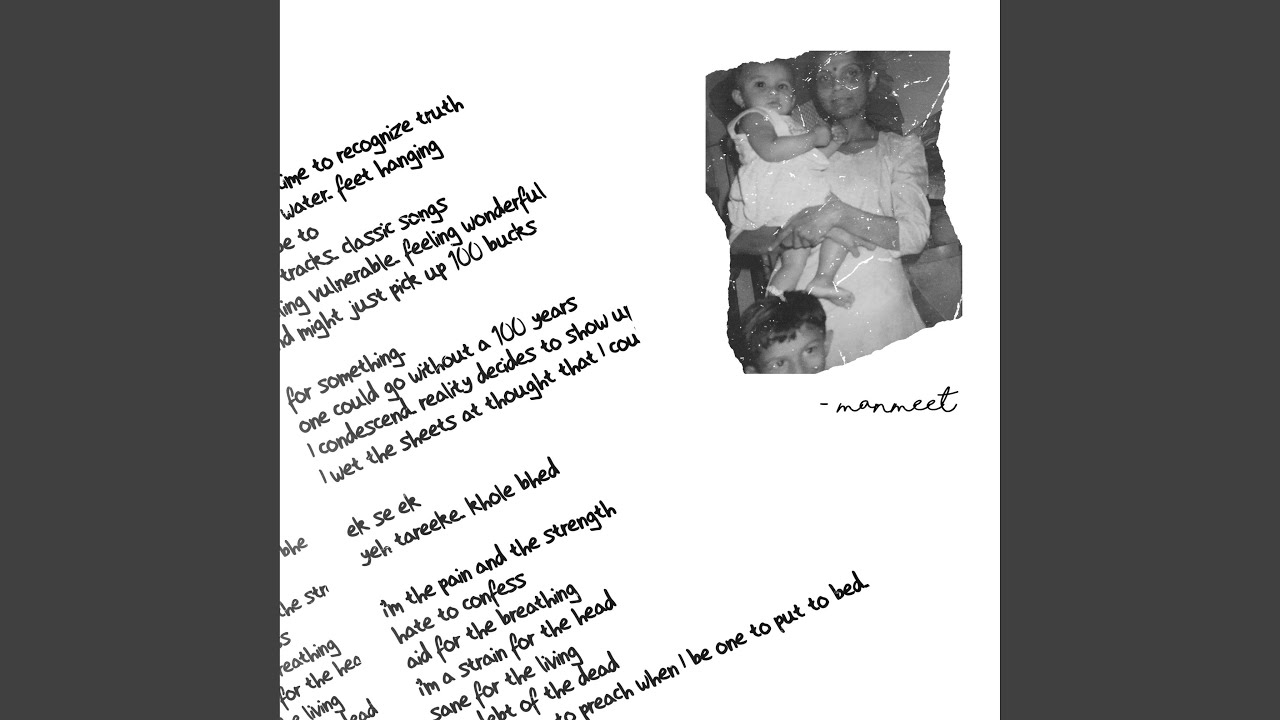 ime to recognize truth
water. feet hanging
e to
tracks. classic songs
ing vulnerable. feeling wonderful
d might just pick up 100 bucks
for something.
one could go without a 100 years
I condescend. reality decides to show u
I wet the sheets at thought that I cou
ek se ek
yeh tareeke. khole bhed
bhe
i'm the pain and the strength
hate to confess
aid for the breathing
i'm a strain for the head
sane for the living
ebt of the dead
to preach when I be one to put to bed.
the str
s
reathing
for the hea
e living
dead
- manmeet